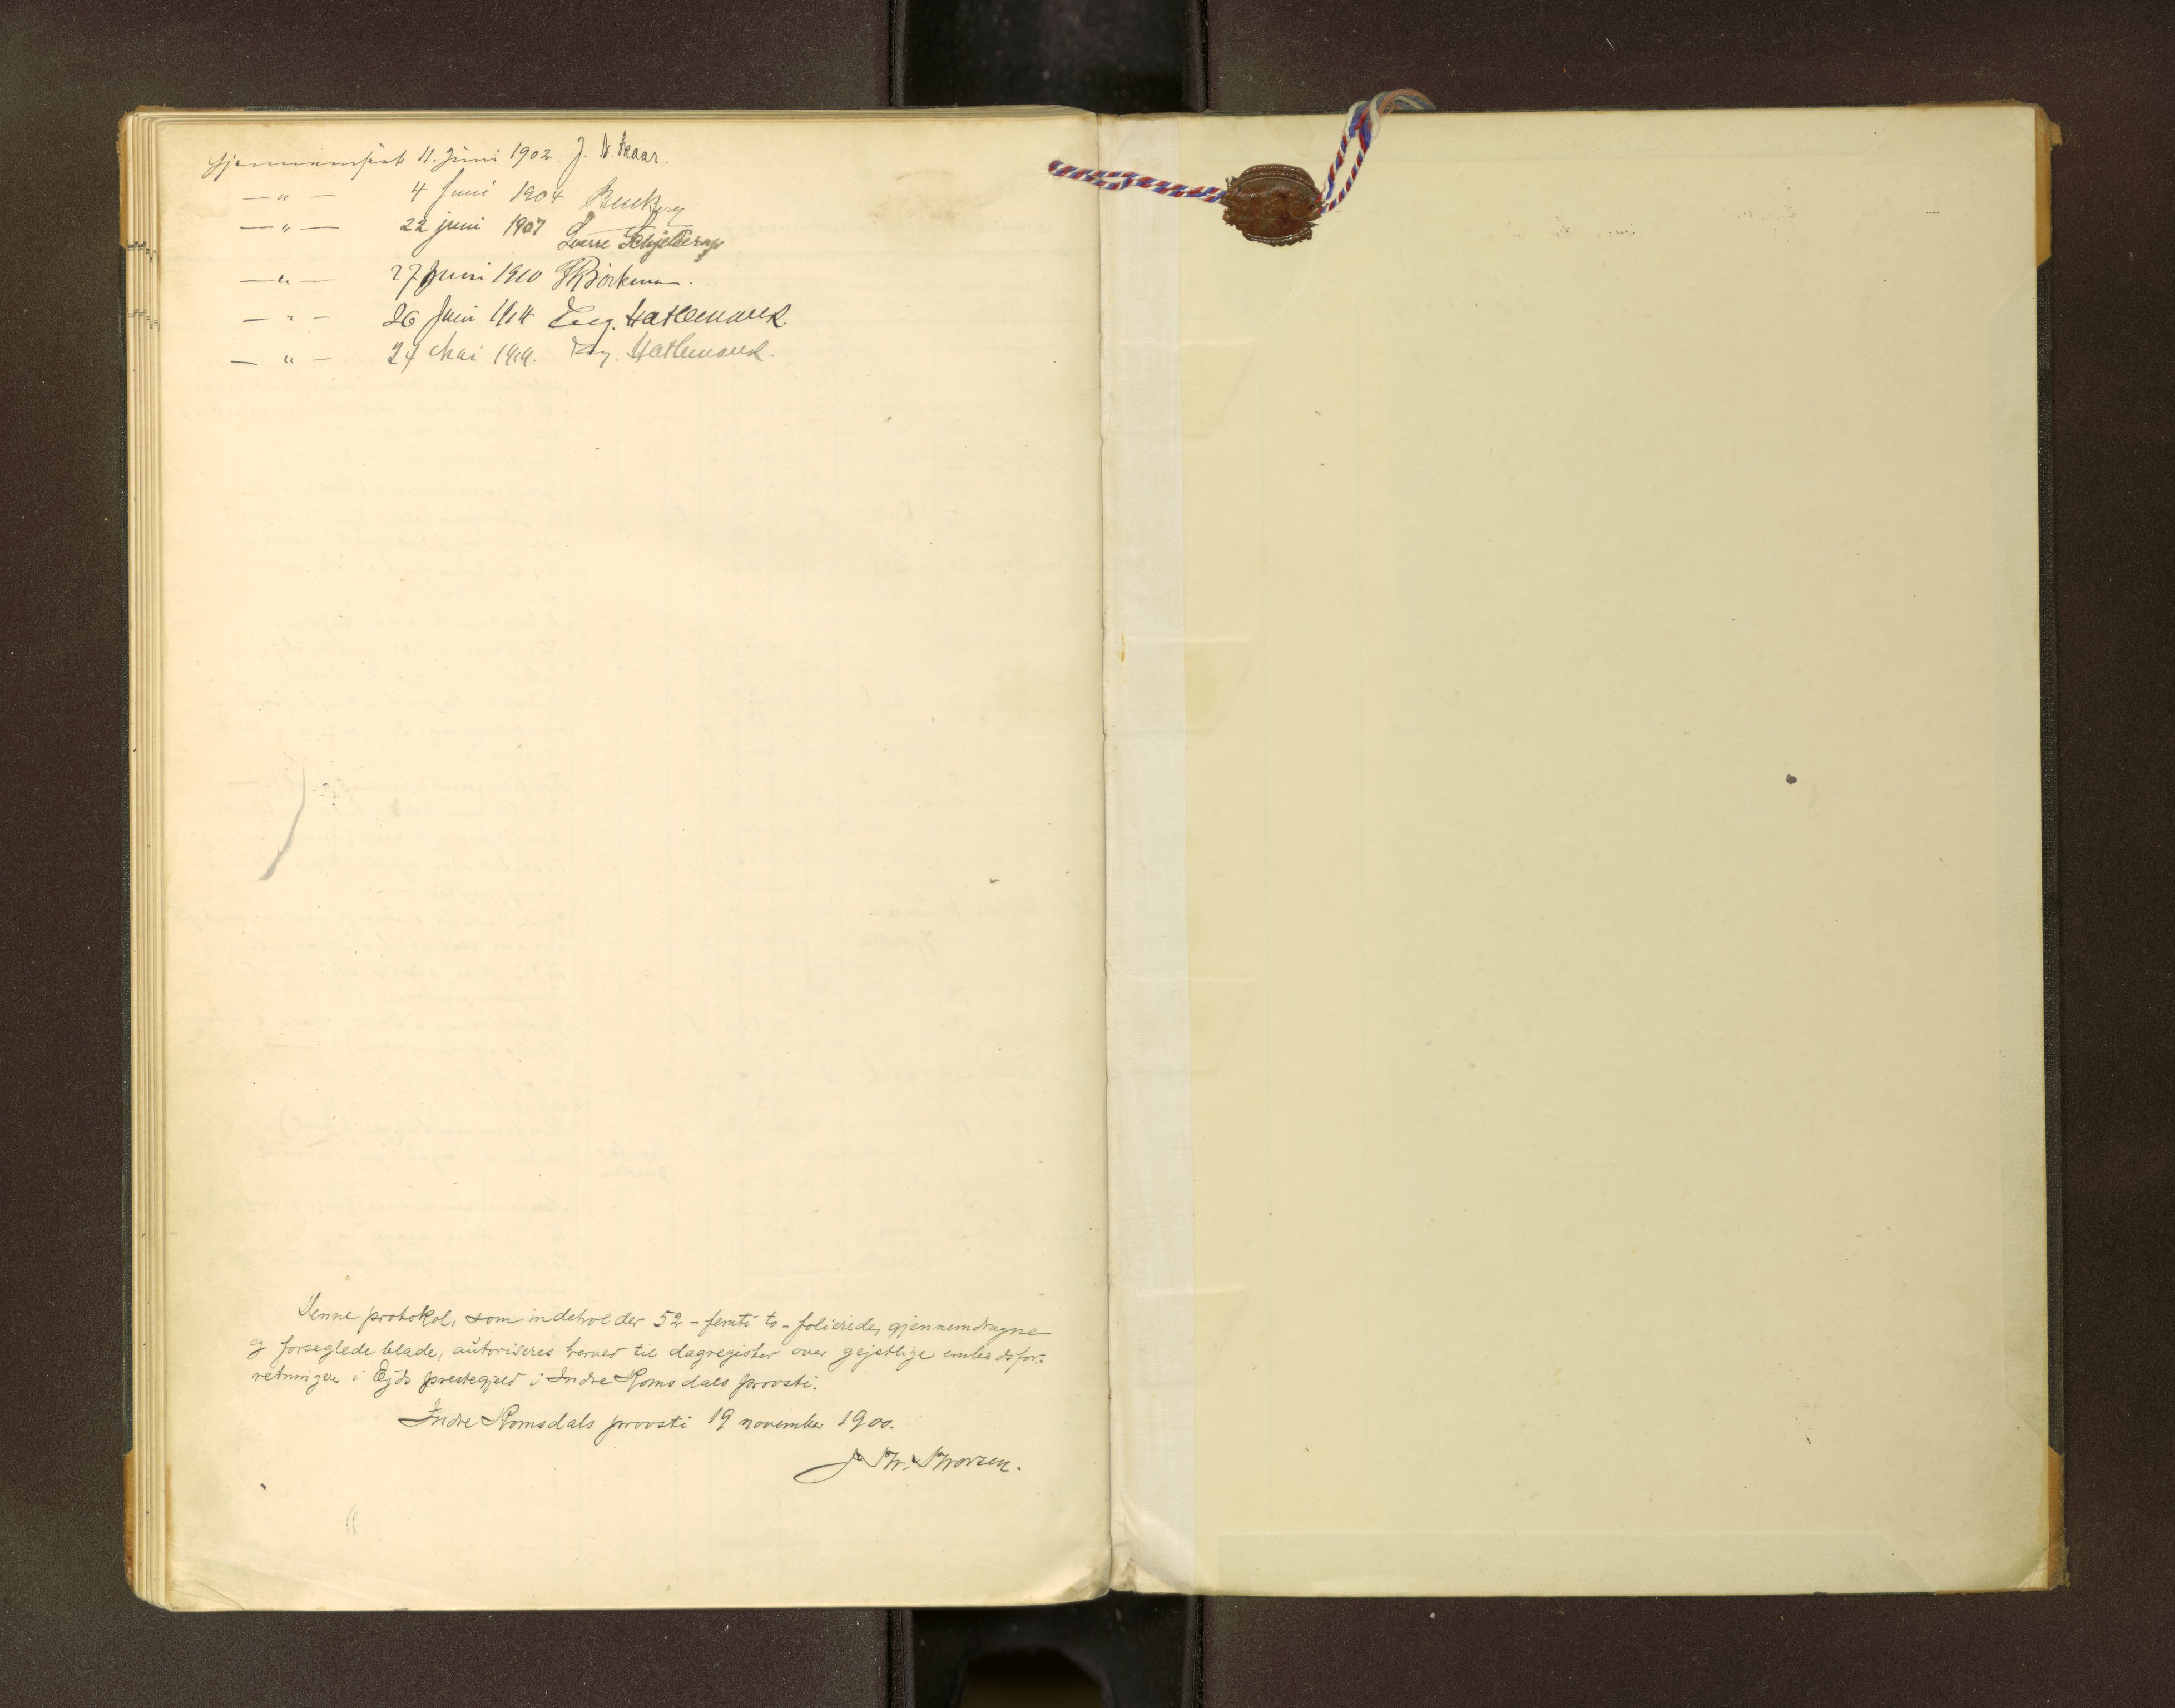 Gjennemseet 11. Juni 1902. J. N. Skaar.
— " — 4 Juni 1904
— " — 22 juni 1907 Sverre Schjelderup
— " — 27 Juni 1910
— " — 26 Juni 1914 Hatlemark
— " — 24 Mai 1919. Hatlemark.
Denne protokol, som indeholder 52 - femti to - folierede, gjennemdragne
og forseglede blade, autoriseres herved til dagregister over gejstlige embedsfor-
retninger i Ejds prestegjeld i Indre Romsdals provsti.
Indre Romsdals provsti 19 november 1900.